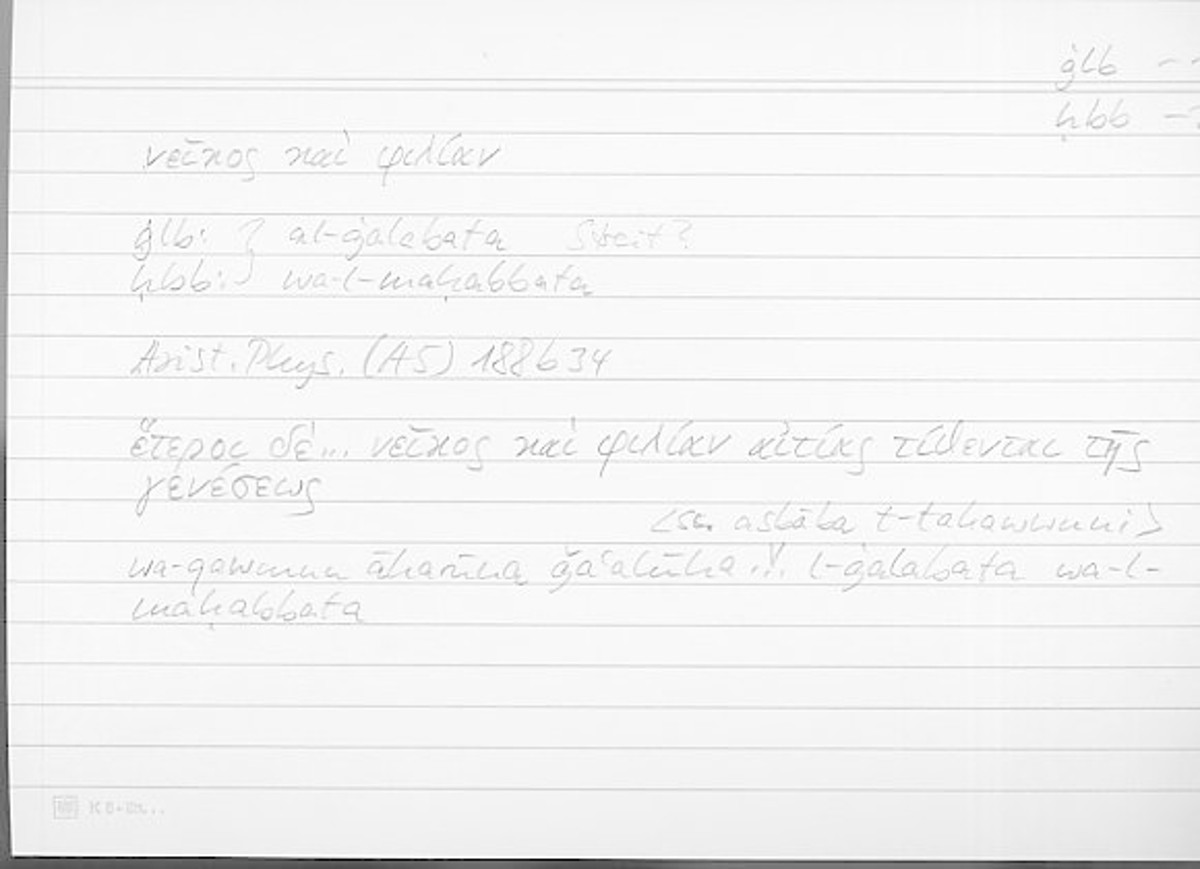 ġlb
ḥbb
νεῖκος καὶ φιλίαν
ġlb: } al-ġalabata Streit?
ḥbb: } wa-l-maḥabbata
Arist. Phys. (A5) 188b34
ἕτεροι δὲ... νεῖκος καὶ φιλίαν αἰτίας τίθενται τῆς
γενέσεως
<sc. asbāba t-takawwuni>
wa-qawmun āḫarūna ǧaʿalūhā ... l-ġalabata wa-l-
maḥabbata